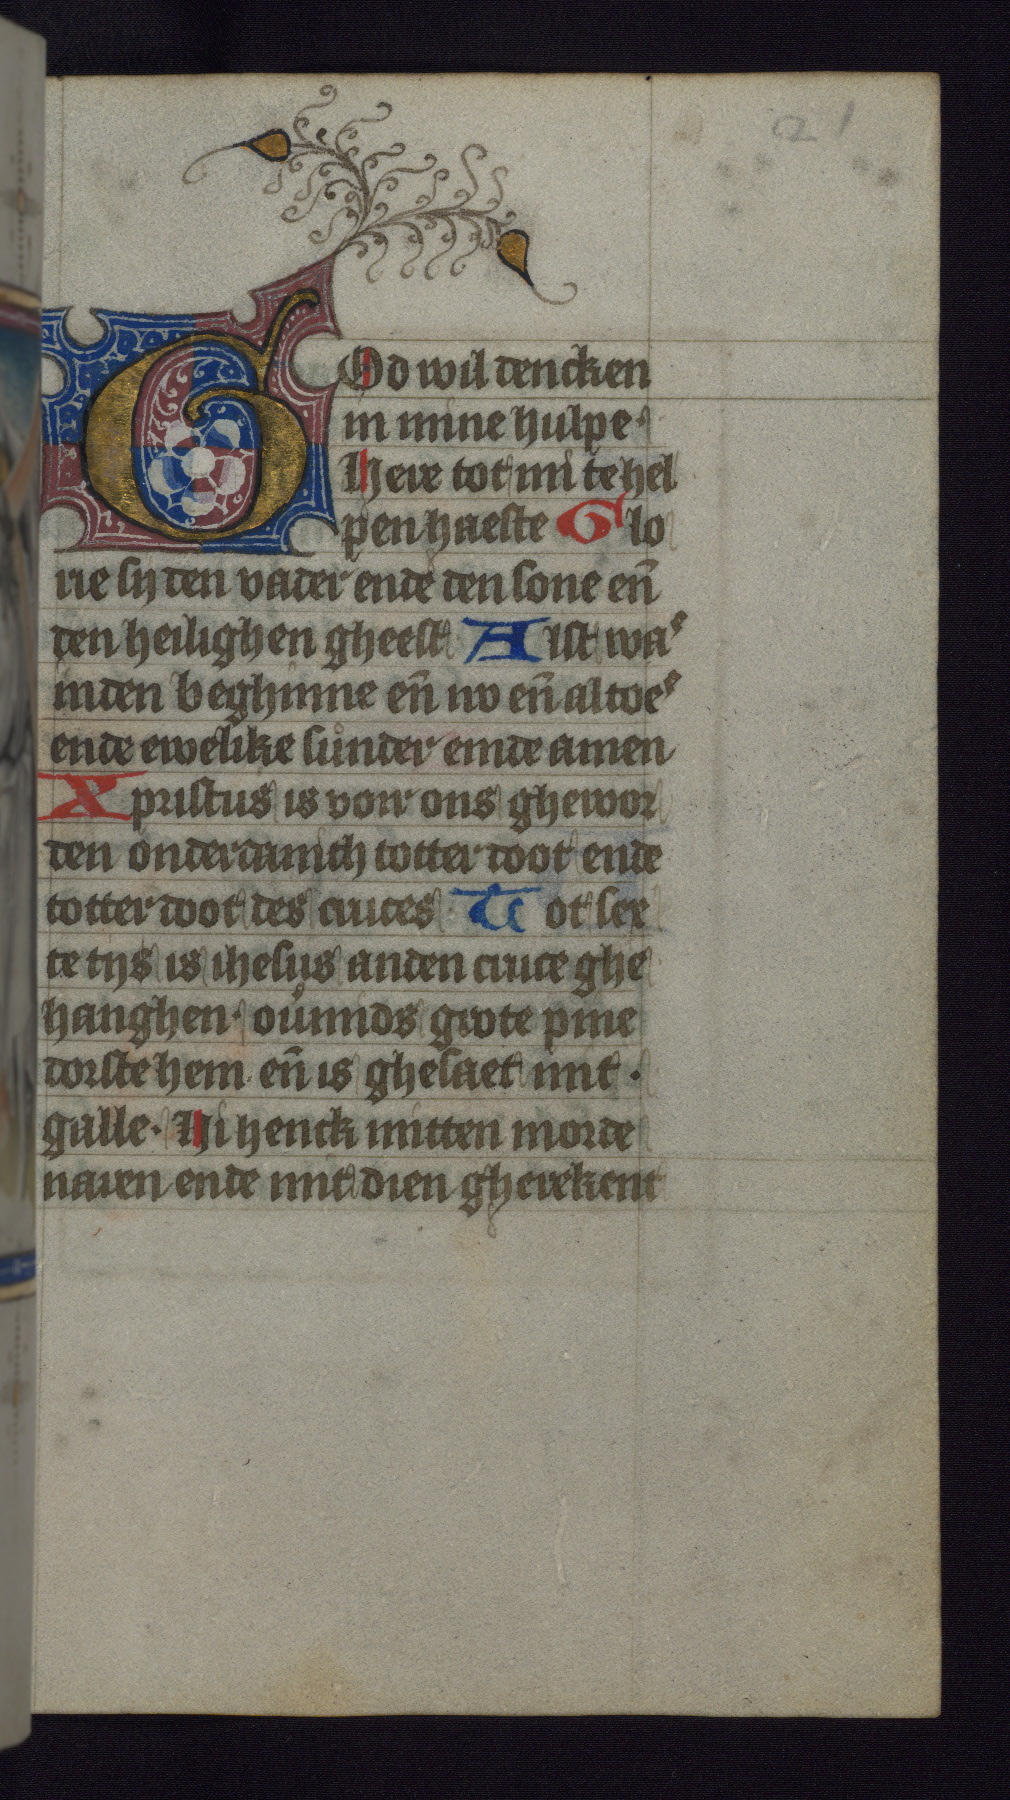 21
GOd wil dencken
in mine hulpe·
Here tot mi te hel
pen haeste Glo
rie sy den vader ende den sone eñ
den heilighen gheest Alst was
inden beghinne eñ nv eñ altoes
ende ewelike sunder einde amen
Xpristus is voir ons ghewor
den onderdanich totter doot ende
totter doot des cruces Tot sex
te tijs is ihesus anden cruce ghe
hanghen· ouͦmids grote pine
dorste hem eñ is ghesaet mit·
galle· Hi henck mitten morde
naren ende mit dien gherekent